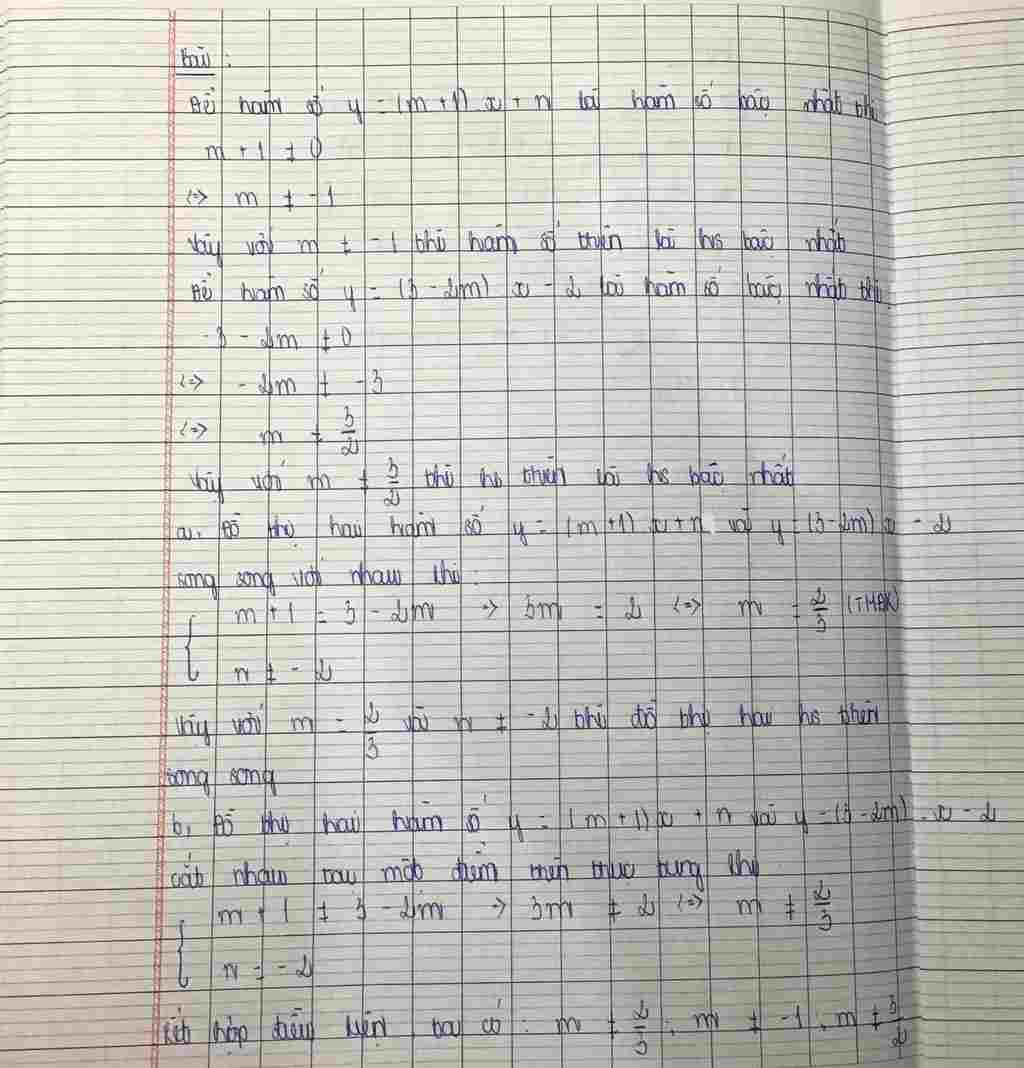 Bài :
Để hàm số y = (m + 1) x + n là hàm số bậc nhất thì
m + 1 ≠ 0
<=> m ≠ -1
Vậy với m ≠ -1 thì hàm số trên là hs bậc nhất
Để hàm số y = (3 - 2m) x - 2 là hàm số bậc nhất thì
3 - 2m ≠ 0
<=> - 2m ≠ -3
<=> m ≠ 3/2
Vậy với m ≠ 3/2 thì hs trên là hs bậc nhất
a, Đồ thị hai hàm số y = (m+1) x + n và y = (3-2m) x - 2
song song với nhau khi :
{ m + 1 = 3 - 2m => 3m = 2 <=> m = 2/3 (TMĐK)
n ≠ - 2
Vậy với m = 2/3 và n ≠ -2 thì đồ thị hai hs trên
song song
b, Đồ thị hai hàm số y = (m+1)x + n và y = (3-2m) . x - 2
cắt nhau tại một điểm trên trục tung khi
{ m + 1 ≠ 3 - 2m => 3m ≠ 2 <=> m ≠ 2/3
n = - 2
Kết hợp điều kiện ta có : m ≠ 2/3 ; m ≠ -1 ; m ≠ 3/2